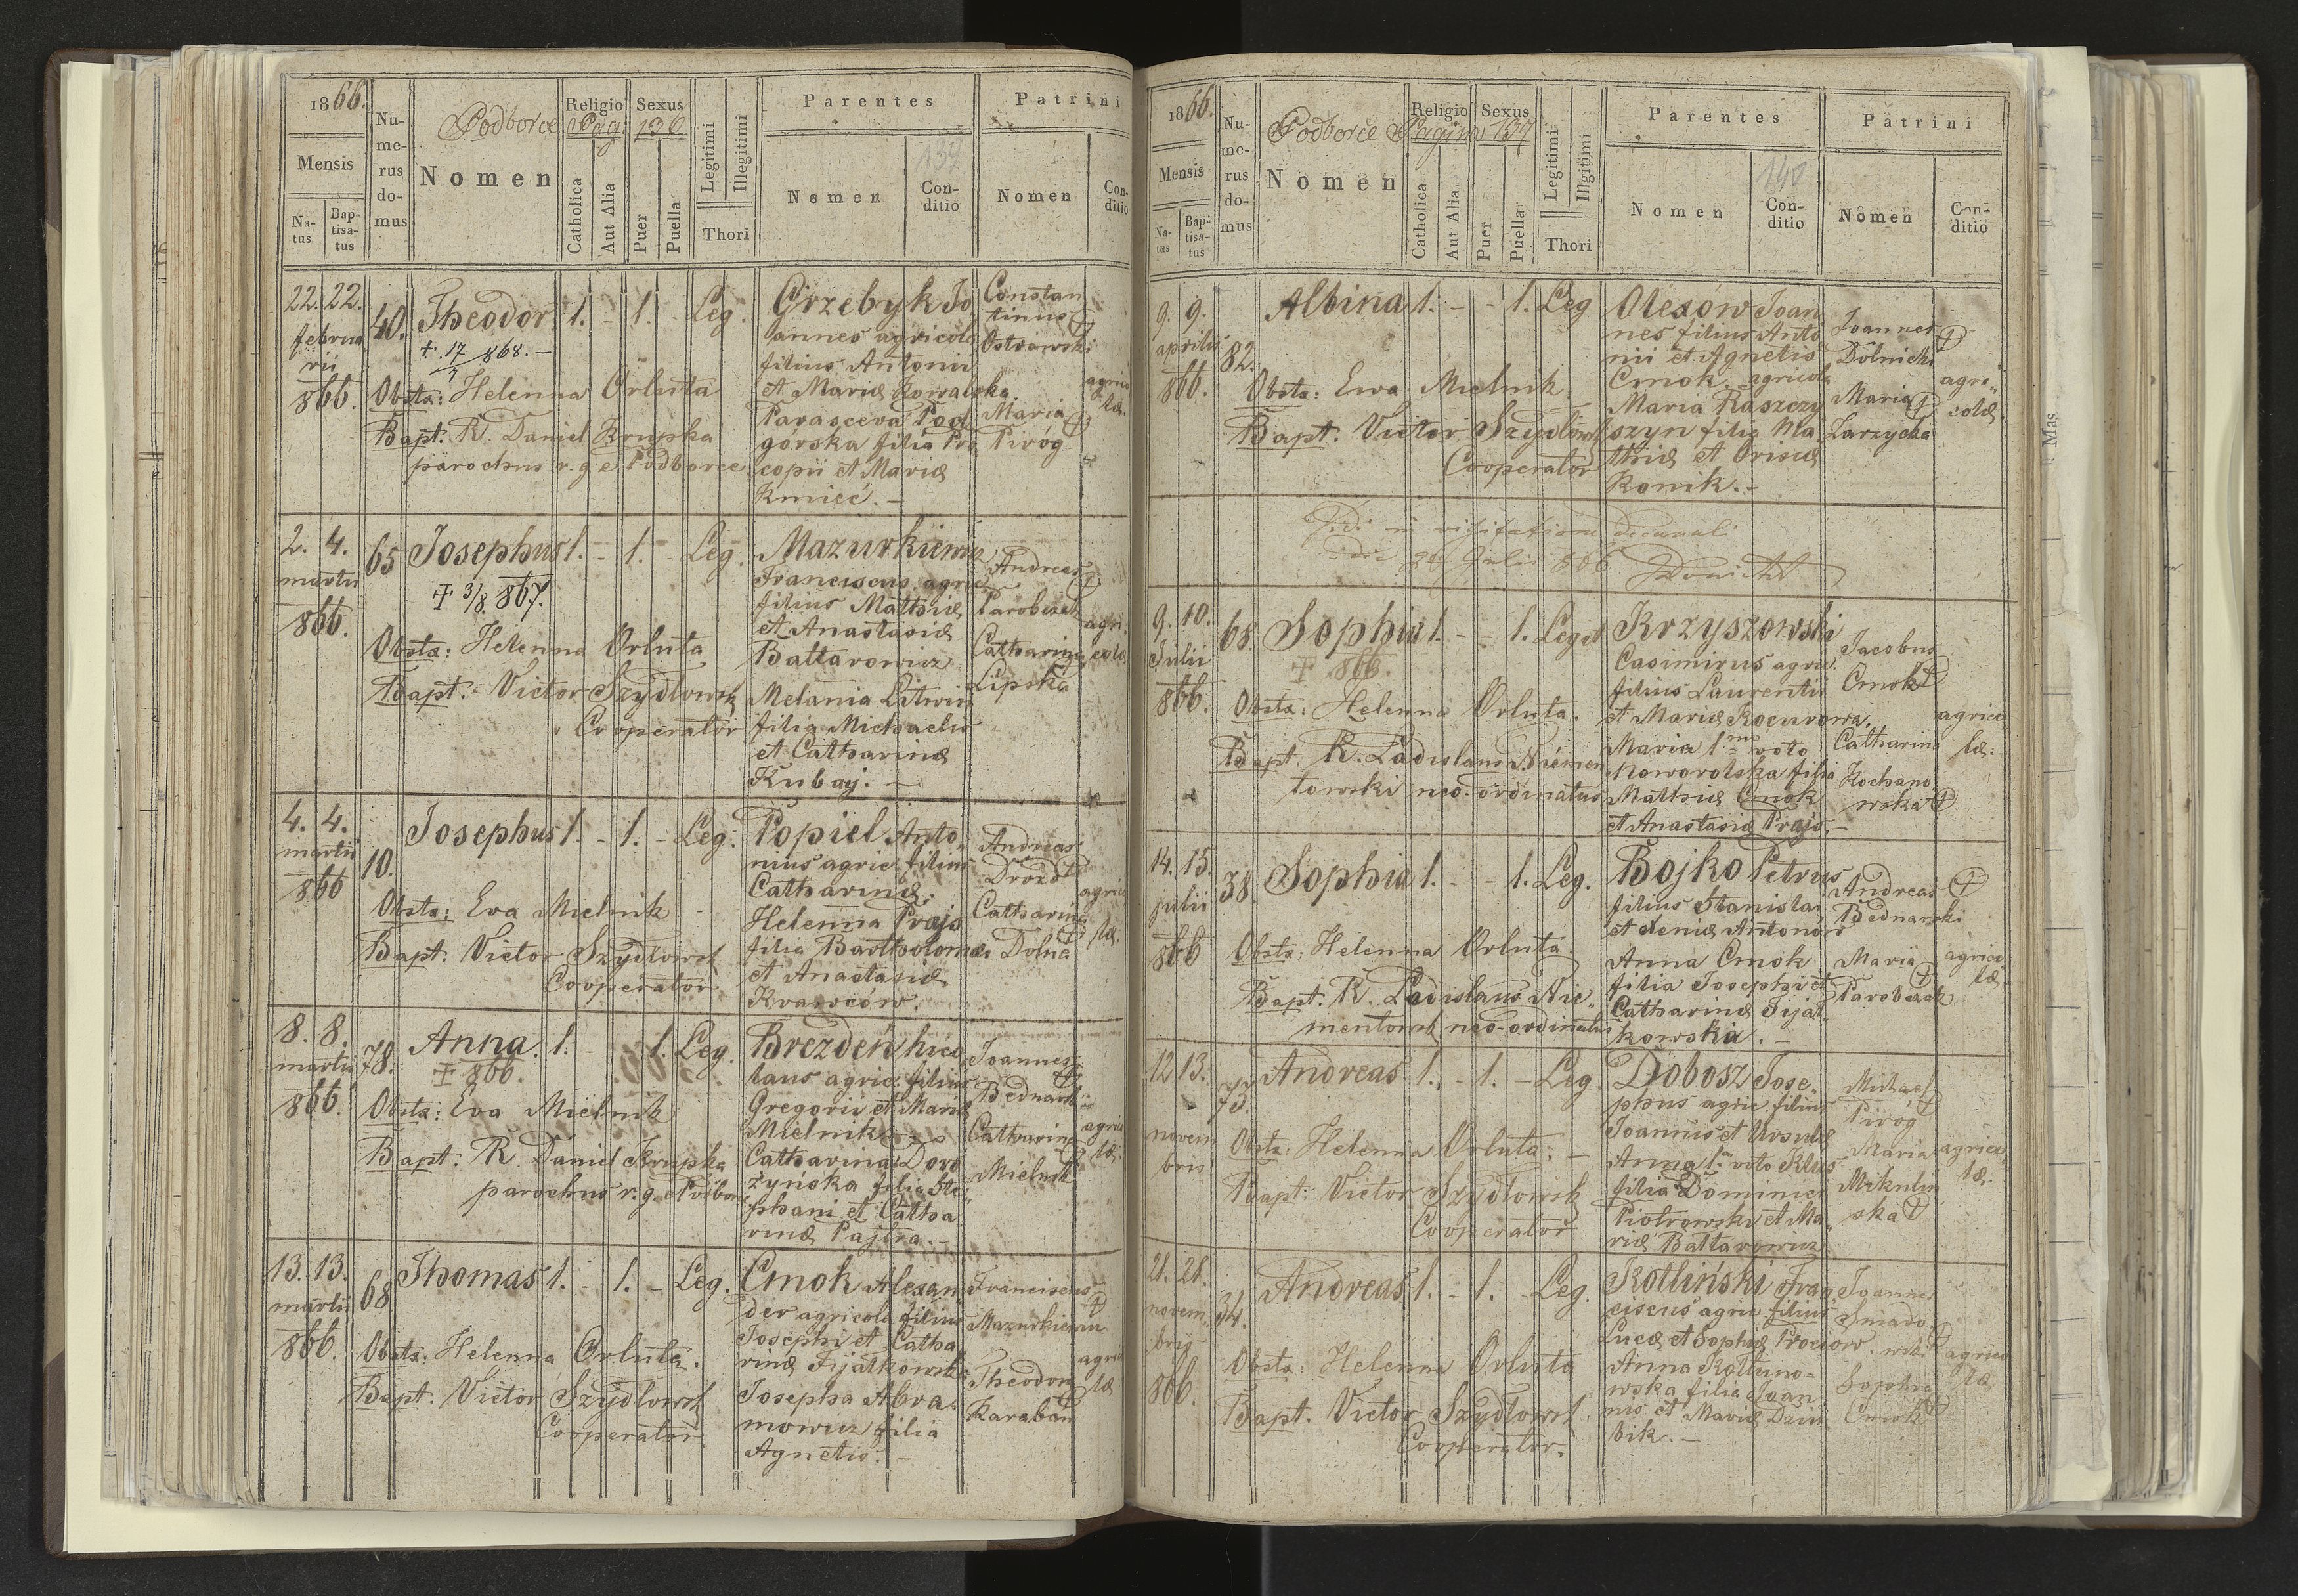 1866.
Mensis
Natus
Baptisatus
Numerus domus
Podborce Pag. 136
Nomen
Religio
Catholica
Aut Alia
Sexus
Puer
Puella
Legitimi
Illegitimi
Thori
Parentes
Nomen
139
Conditio
Patrini
Nomen
Conditio
22. 22.
februa
rii
866.
40.
Theodor 1. - 1. - Leg.
+ 17/7 868. -
Obstx: Helenna Orluta
Bapt. R. Daniel Krupka
parochus r. g. e Podborce
Grzebyk Jo
annes agricola
filius Antonii
et Mariæ Kowalska
Parasceva Pod
górska filia Pro
copii et Mariæ
Kmieć. -
Constan
tinus
Ostrowski
Maria
Piróg
agrico
læ.
2. 4.
martii
866.
65
Josephus 1. - 1. - Leg.
+ 3/8 867.
Obstx: Helenna Orluta
Bapt. Victor Szydlowsk
Cooperator
Mazurkiewicz
Franciscus agric
filius Mathiæ
et Anastasiæ
Baltarowicz
Melania Litwin
filia Michaelis
et Catharinæ
Kubaj. -
Andreas
Parobczak
Catharina
Lipska
agri
colæ
4. 4.
martii
866
10.
Josephus 1. - 1. - Leg.
Obstx: Eva Mielnik
Bapt. Victor Szydlowsk
Cooperator
Popiel Anto
nius agric filius
Catharinæ.
Helenna Prajs
filia Bartholomæi
et Anastasiæ
Krawców.
Andreas
Drozd
Catharina
Dolna
agrico
læ.
8. 8.
martii
866.
78.
Anna. 1. - 1. Leg.
+ 866.
Obstx: Eva Mielnik
Bapt. R. Daniel Krupka
parochus r. g. e Podborce
Brezdeń Nico
laus agric. filius
Gregorii et Mariæ
Mielnik. -
Catharina Doro
żyńska filia Ste
phani et Catha
rinæ Pajtra. -
Joannes
Bednarski
Catharina
Mielnik
agrico
læ.
13. 13.
martii
866.
68
Thomas 1. - 1. - Leg.
Obstx: Helenna Orluta.
Bapt. Victor Szydlowsk
Cooperator
Cmok Alexan
der agricola filius
Josephi et Catha
rinæ Fijałkowska
Josepha Abra
mowicz filia
Agnetis. -
Franciscus
Mazurkiewicz
Theodora
Karaban
agrico
læ
1866.
Mensis
Natus
Baptisatus
Numerus domus
Podborce Pagina 137
Nomen
Religio
Catholica
Aut Alia
Sexus
Puer
Puella
Legitimi
Illgitimi
Thori
Parentes
Nomen
140
Conditio
Patrini
Nomen
Conditio
9. 9.
aprilis
866.
82.
Albina 1. - - 1. Leg
Obstx: Ewa Mielnik
Bapt. Victor Szydlowsk
Cooperator
Olexów Joan
nes filius Anto
nii et Agnetis
Cmok. agricola
Maria Raszczy
szyn filia Ma
thiæ et Orisiæ
Konik. -
Joannes
Dolnicki
Maria
Zarzycka
agri
colæ
Vidi in visitatione decanali
Julii 866
9. 10.
Julii
866.
68.
Sophia 1. - - 1. Legit
+ 866.
Obstx: Helenna Orluta.
Bapt. R. Ladislaus Niemen
towski neo-ordinatus
Krzyszowski
Casimirus agric.
filius Laurentii
et Mariæ Kocurowa.
Maria 1mo voto
Noworolska filia
Mathiæ Cmok
et Anastasiæ Prajs. -
Jacobus
Cmok
Catharina
Kochano
wska
agrico
læ.
14. 15.
julii
866
38.
Sophia 1. - - 1. Leg.
Obstx: Helenna Orluta.
Bapt. R. Ladislaus Nie
mentowsk neo-ordinatus
Bojko Petrus
filius Stanislai
et Xeniæ Antonów
Anna Cmok
filia Josephi et
Catharinæ Fijał
kowska. -
Andreas
Bednarski
Maria
Parobczak
agrico
læ.
12 13.
novem
bris
73.
Andreas 1. - 1. - Leg.
Obstx. Helenna Orluta. -
Bapt. Victor Szydlowsk
Cooperator
Dobosz Jose
phus agric. filius
Joannis et Ursulæ
Anna 1. voto Klus
filia Dominici
Piotrowski et Ma
riæ Baltarowicz.
Michael
Piróg
Maria
Mikulin
ska
agrico
læ.
21. 21.
novem
bris
866.
34.
Andreas 1. - 1. Leg.
Obstx: Helenna Orluta
Bapt. Victor Szydlowsk
Cooperator.
Kotliński Fran
ciscus agric filius
Lucæ et Sophiæ Prociow.
Anna Kołtuno
wska filia Joan
nis et Mariæ Dziu
bik. -
Joannes
Śniado
wski
Sophia
Cmok
agrico
læ
Mas